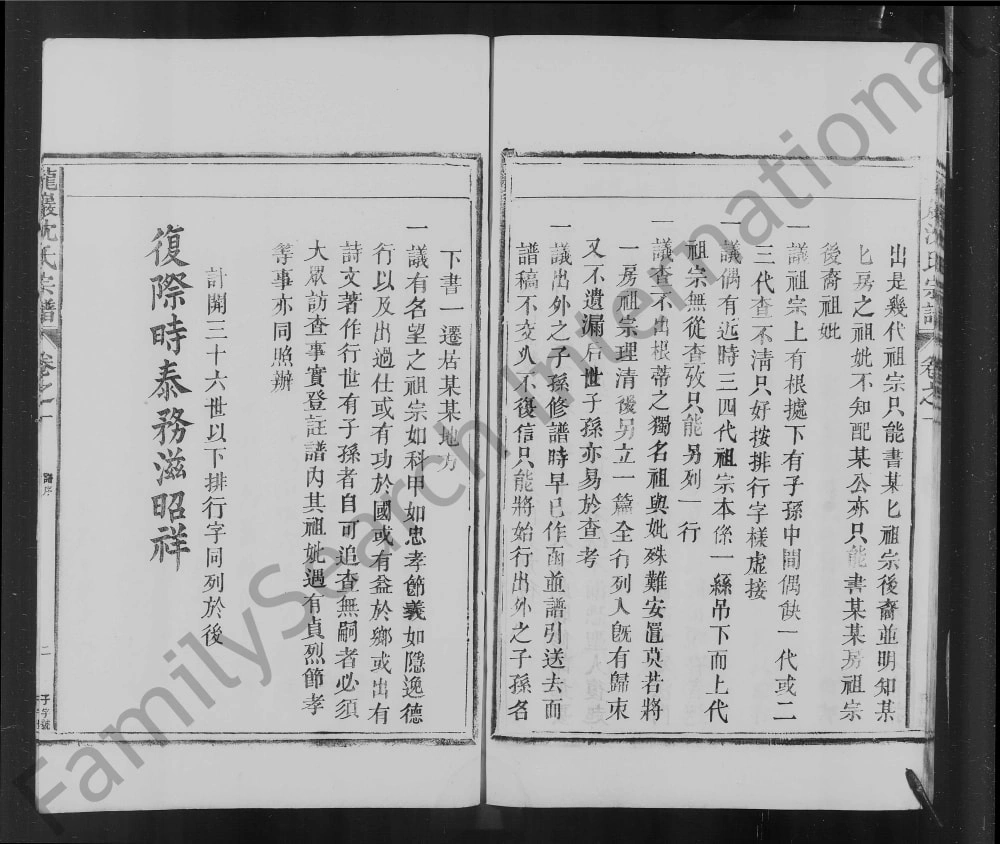 出是幾代祖宗只能書某匕祖宗後裔並明知某
匕房之祖妣不知配某公亦只能書某某房祖宗
後裔祖妣
一議祖宗上有根據下有子孫中間偶缺一代或二
三代查不清只好按排行字樣虛接
一議偶有近時三四代祖宗本係一綵吊下而上代
祖宗無從查攷只能另列一行
一議查不出根蒂之獨名祖與妣殊難安置莫若將
一房祖宗理清後另立一篇全行列入旣有歸束
又不遺漏后世子孫亦易於查考
一議出外之子孫修譜時早已作函並譜引送去而
譜稿不交又不復信只能將始行出外之子孫名
下書一遷居某某地方
一議有名望之祖宗如科甲如忠孝節義如隱逸德
行以及出過仕或有功於國或有益於鄉或出有
詩文著作行世有子孫者自可追查無嗣者必須
大眾訪查事實登註譜內其祖妣遇有貞烈節孝
等事亦同照辦
計開三十六世以下排行字同列於後
復際時泰務滋昭祥
龍巖沈氏宗譜
卷之一
譜序
二
FamilySearch International